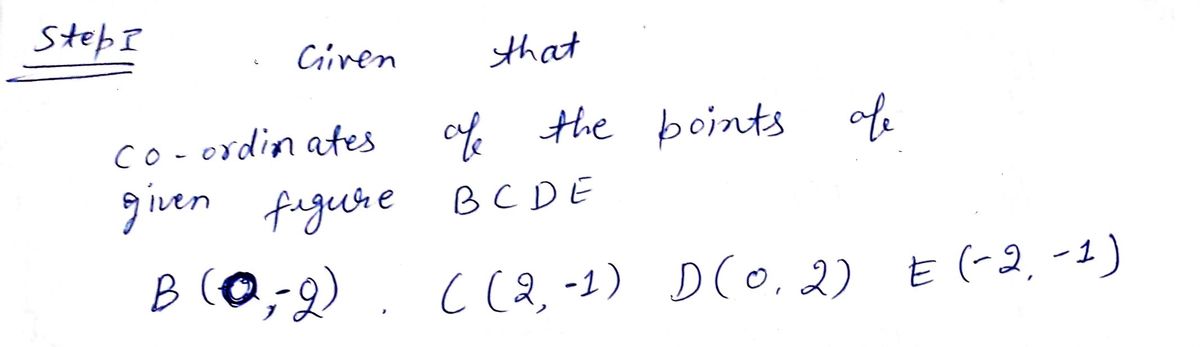 Step I
Given that
co-ordinates of the points of
given figure BCDE
B (0,-2). C (2,-1) D(0,2) E (-2,-1)